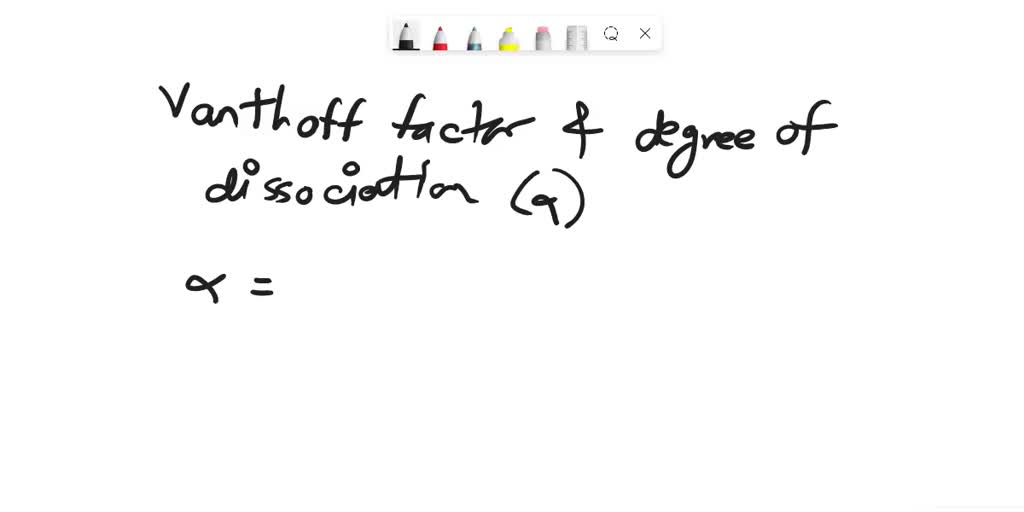 Vanthoff factor & degree of
dissociation (α)
α =